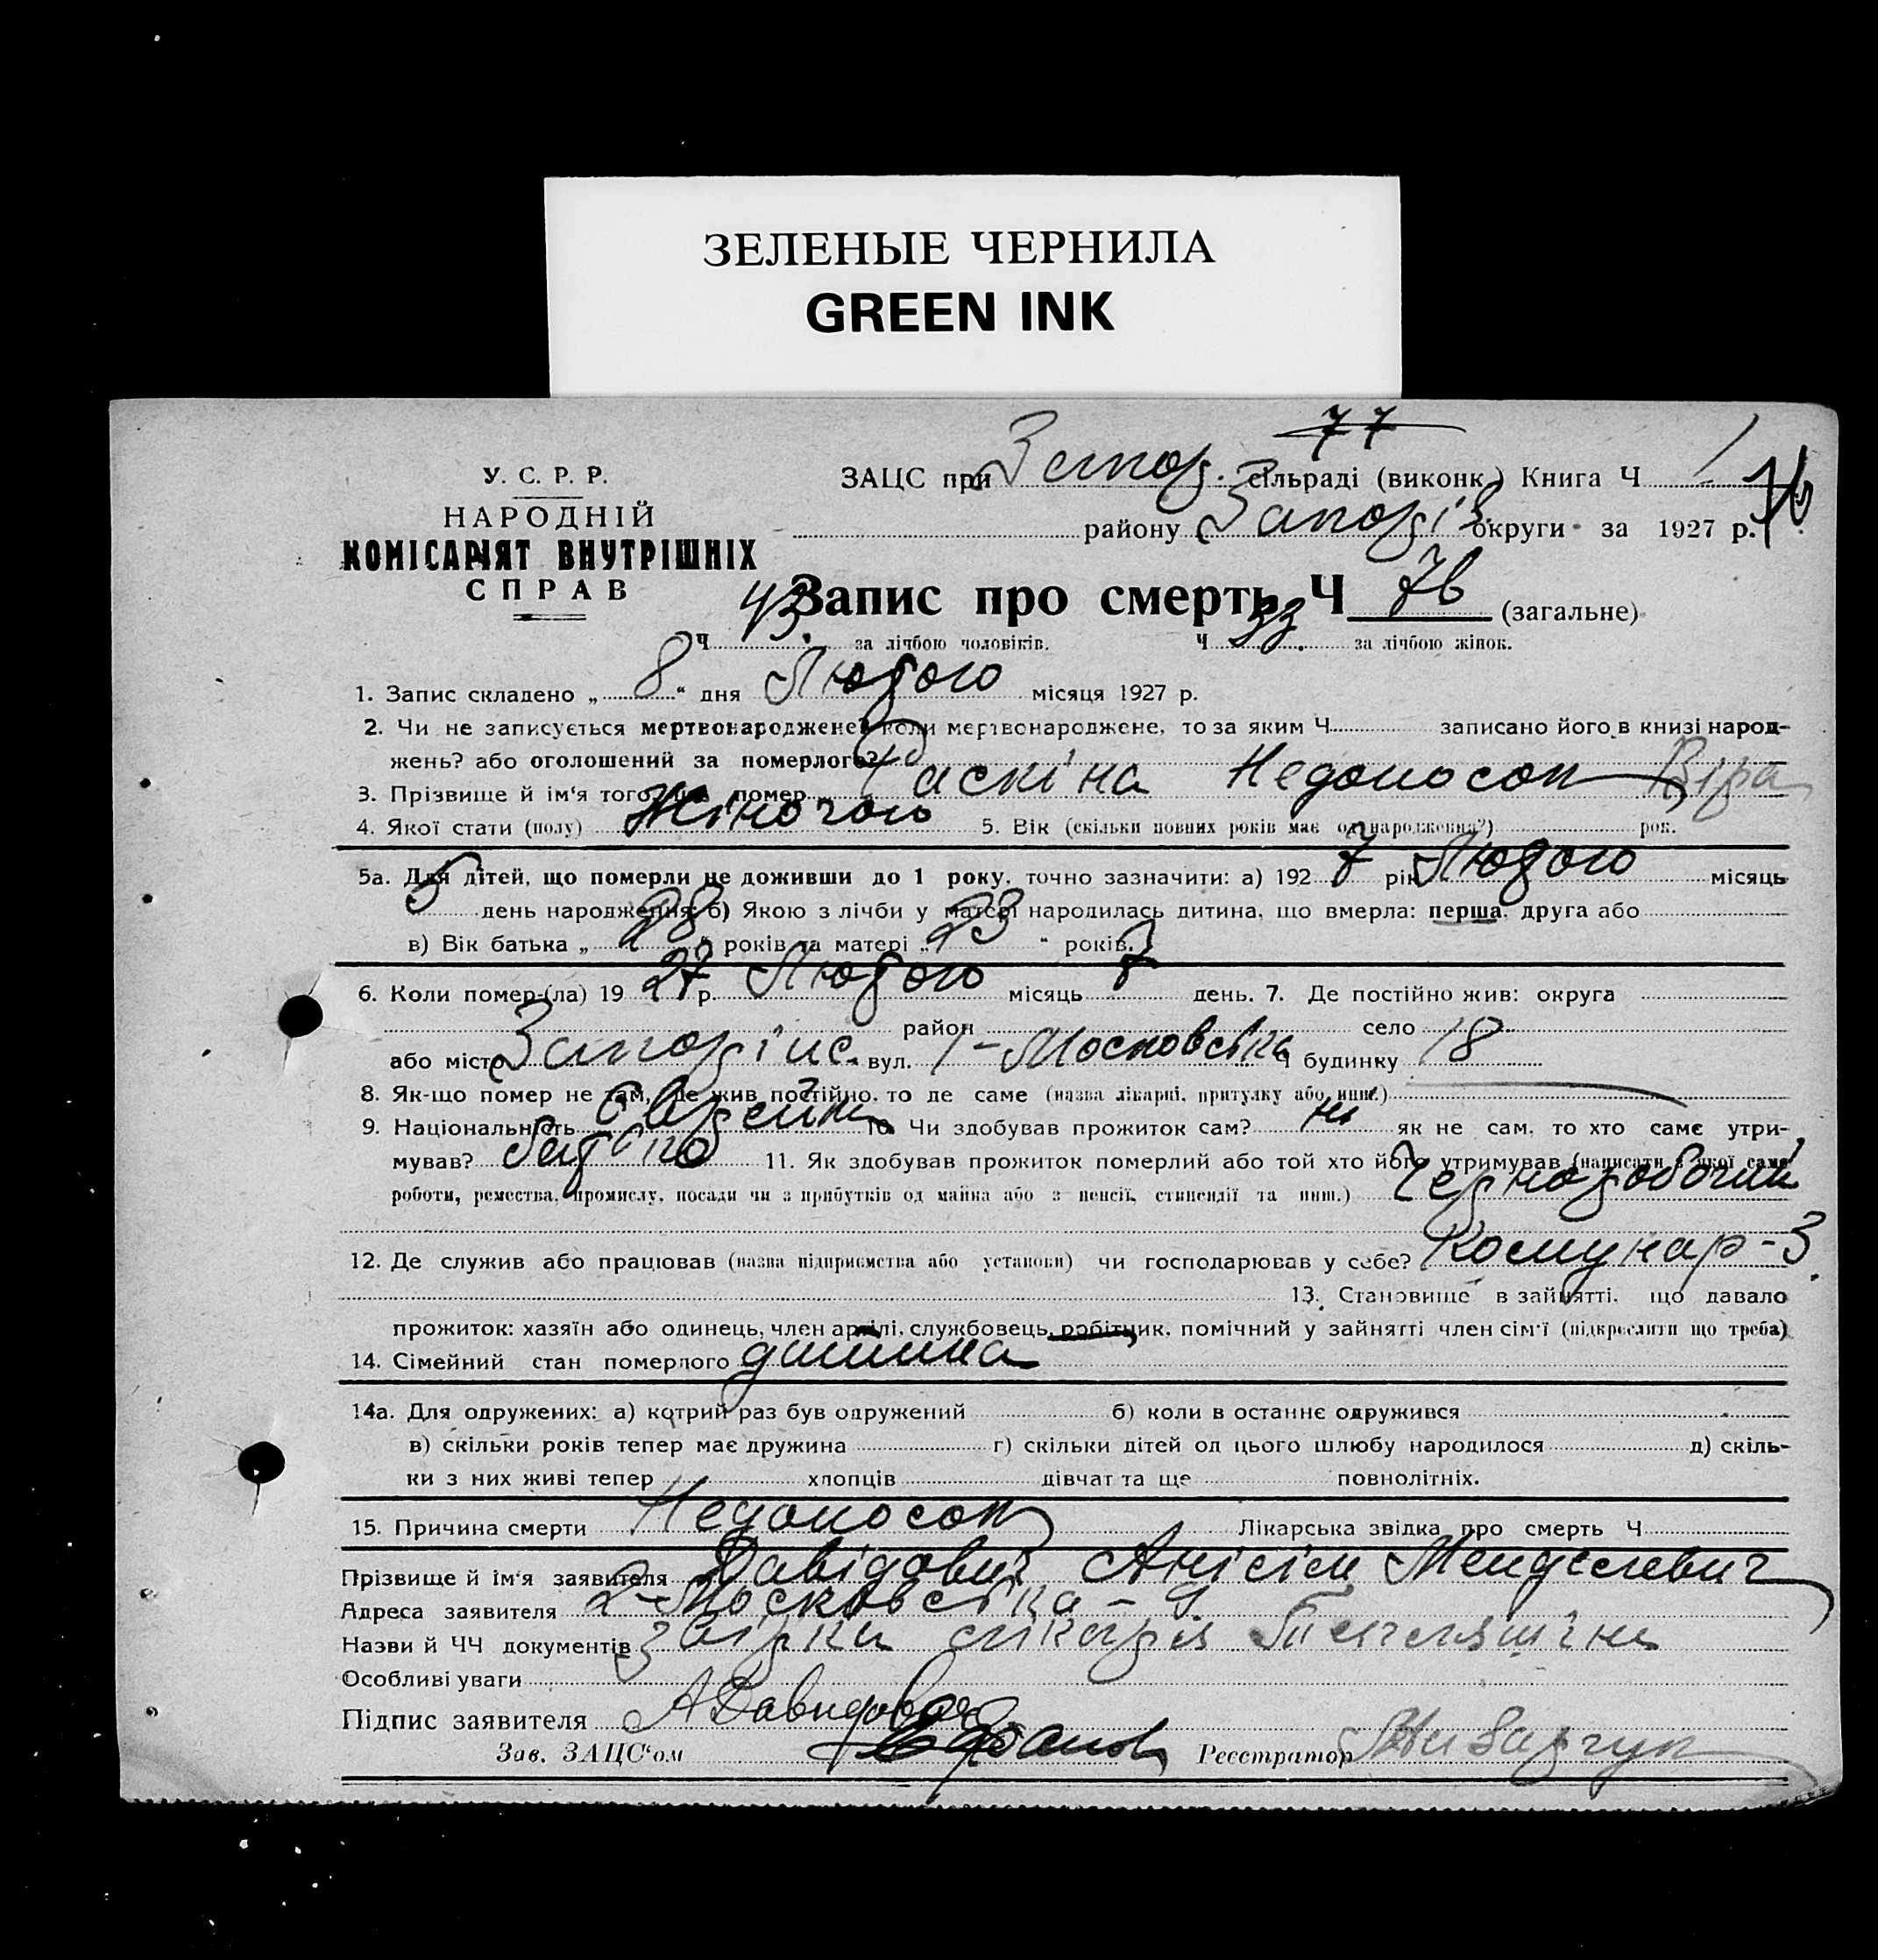 ЗЕЛЕНЫЕ ЧЕРНИЛА
GREEN INK
77
У. С. Р. Р.
НАРОДНІЙ
КОМІСАРІЯТ ВНУТРІШНІХ
СПРАВ
ЗАЦС при Запор. сільраді (виконк.) Книга Ч 1
району Запоріз. округи за 1927 р.
Запис про смерть Ч 76 (загальне)
Ч 43. за лічбою чоловіків. Ч 33. за лічбою жінок.
1. Запис складено „ 8 “ дня Лютого місяця 1927 р.
2. Чи не записується мертвонароджене? коли мертвонароджене, то за яким Ч записано його в книзі народ-
жень? або оголошений за померлого?
3. Прізвище й ім'я того, що помер Раскіна Недоносок Віра
4. Якої стати (полу) Жіночого 5. Вік (скільки повних років має од народження?) рок.
5а. Для дітей, що померли не доживши до 1 року, точно зазначити: а) 192 7 рік Лютого місяць
5 день народження; б) Якою з лічби у матері народилась дитина, що вмерла: перша, друга або
в) Вік батька „ 28 “ років та матері „ 23 “ років.
6. Коли помер-(ла) 19 27 р. Лютого місяць 7 день. 7. Де постійно жив: округа
район село
або місто Запоріжс. вул. 1-Московська Ч будинку 18
8. Як-що помер не там, де жив постійно, то де саме (назва лікарні, притулку або инш.)
9. Національність Єврейка 10. Чи здобував прожиток сам? ні як не сам, то хто саме утри-
мував? Батько 11. Як здобував прожиток померлий або той хто його утримував (написати з якої саме
роботи, ремества, промислу, посади чи з прибутків од майна або з пенсії, стипендії та инш.) Черноробочий
12. Де служив або працював (назва підприємства або установи) чи господарював у себе? Комунар-3
13. Становище в зайнятті, що давало
прожиток: хазяїн або одинець, член артілі, службовець, робітник, помічний у зайнятті член сім'ї (підкреслити що треба)
14. Сімейний стан померлого дитина
14а. Для одружених: а) котрий раз був одружений б) коли в останнє одружився
в) скільки років тепер має дружина г) скільки дітей од цього шлюбу народилося д) скіль-
ки з них живі тепер хлопців дівчат та ще повнолітніх.
15. Причина смерти Недоносок Лікарська звідка про смерть Ч
Прізвище й ім'я заявителя Давідович Анісім Менделевич
Адреса заявителя 2-Московська - 9
Назви й ЧЧ документів лікаря
Особливі уваги
Підпис заявителя АДавидович
Зав. ЗАЦС'ом Реєстратор